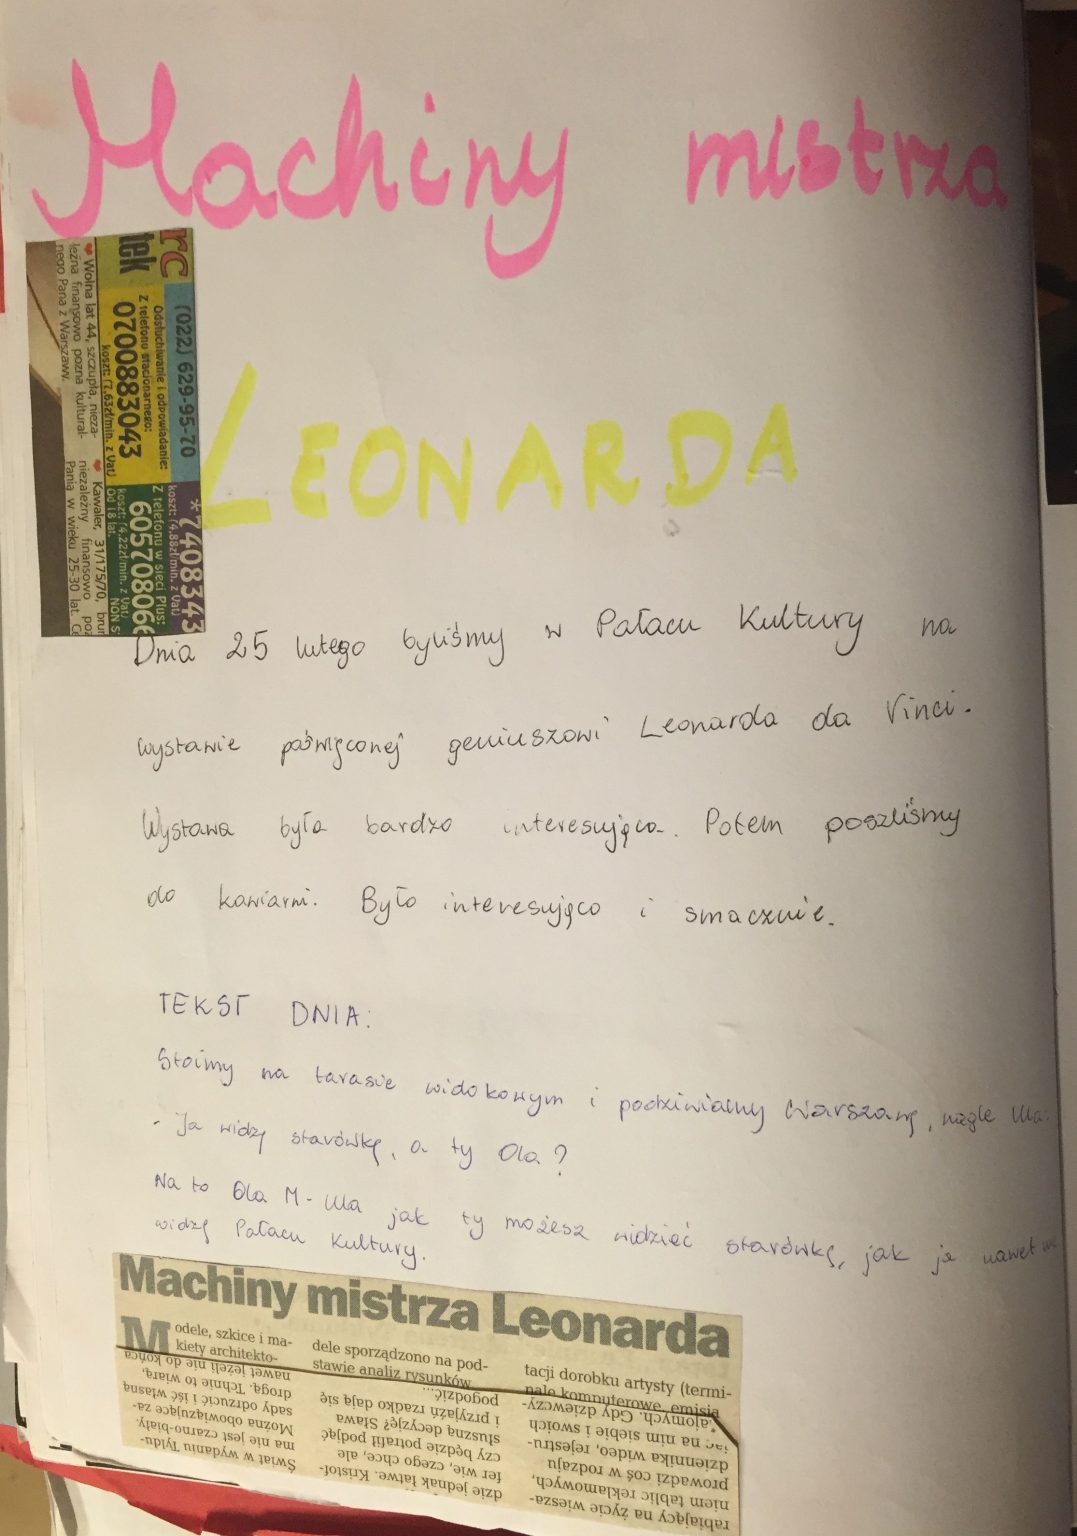 Machiny mistrza
LEONARDA
rc
tek
(022) 629-95-70
Odsłuchiwanie i odpowiadanie:
Z telefonu stacjonarnego:
0700883043
koszt: (7.63zł/min. z Vat)
*7408343
koszt: (4.88zł/min. z Vat)
Z telefonu w sieci Plus:
605708066
koszt: (4.22zł/min. z Vat)
Od 18 lat.
NON S
Wolna lat 44, szczupła, nieza-
leżna finansowo pozna kultural-
nego Pana z Warszawy.
Kawaler, 31/175/70, brun
niezależny finansowo poz
Panią w wieku 25-30 lat.
Dnia 25 lutego byliśmy w Pałacu Kultury na
wystawie poświęconej geniuszowi Leonarda da Vinci.
Wystawa była bardzo interesująca. Potem poszliśmy
do kawiarni. Było interesująco i smacznie.
TEKST DNIA:
Stoimy na tarasie widokowym i podziwiamy Warszawę, nagle Ula:
- Ja widzę starówkę, a ty Ola?
Na to Ola M - Ula jak ty możesz widzieć starówkę, jak ja nawet nie
widzę Pałacu Kultury.
Machiny mistrza Leonarda
Modele, szkice i ma-
kiety architekto-
dele sporządzono na pod-
stawie analiz rysunków
tacji dorobku artysty (termi-
nale komputerowe, emisja
Świat w wydaniu Tyldu-
ma nie jest czarno-biały.
Można obowiązujące za-
sady odrzucić i iść własną
drogą. Tchnie to wiarą,
nawet jeżeli nie do końca
dzie jednak łatwe. Kristof-
fer wie, czego chce, ale
czy będzie potrafił podjąć
słuszną decyzję? Sława
i przyjaźń rzadko dają się
pogodzić...
rabiający na życie wiesza-
niem tablic reklamowych,
prowadzi coś w rodzaju
dziennika wideo, rejestru-
jąc na nim siebie i swoich
znajomych. Gdy dziewczy-